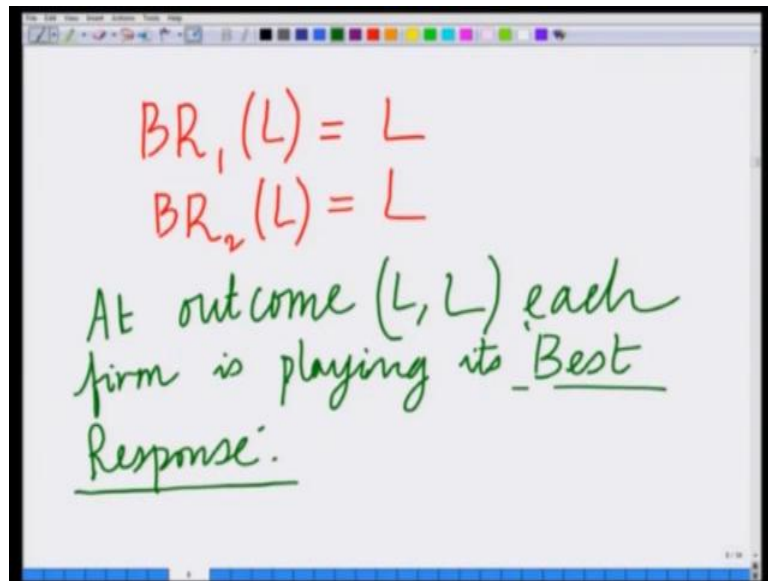 File Edit View Insert Actions Tools Help
BR₁(L) = L
BR₂(L) = L
At outcome (L, L) each
firm is playing its Best
Response.